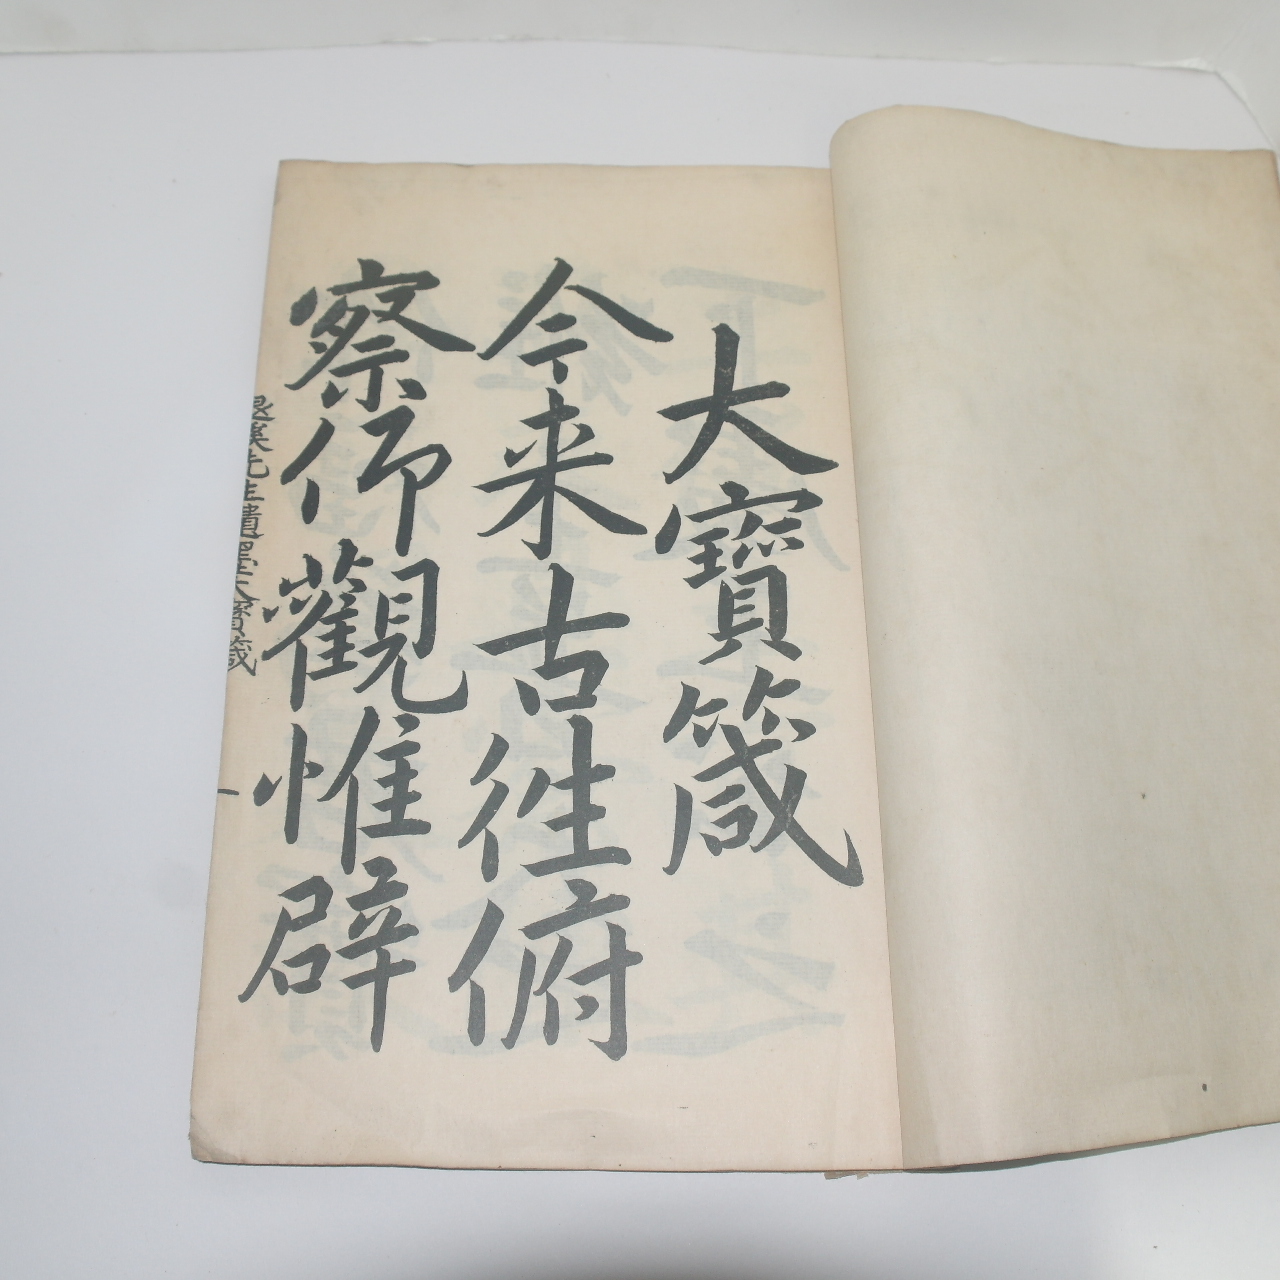 大寶箴
今来古徃俯
察仰觀惟辟
退溪先生遺墨大寶箴
一